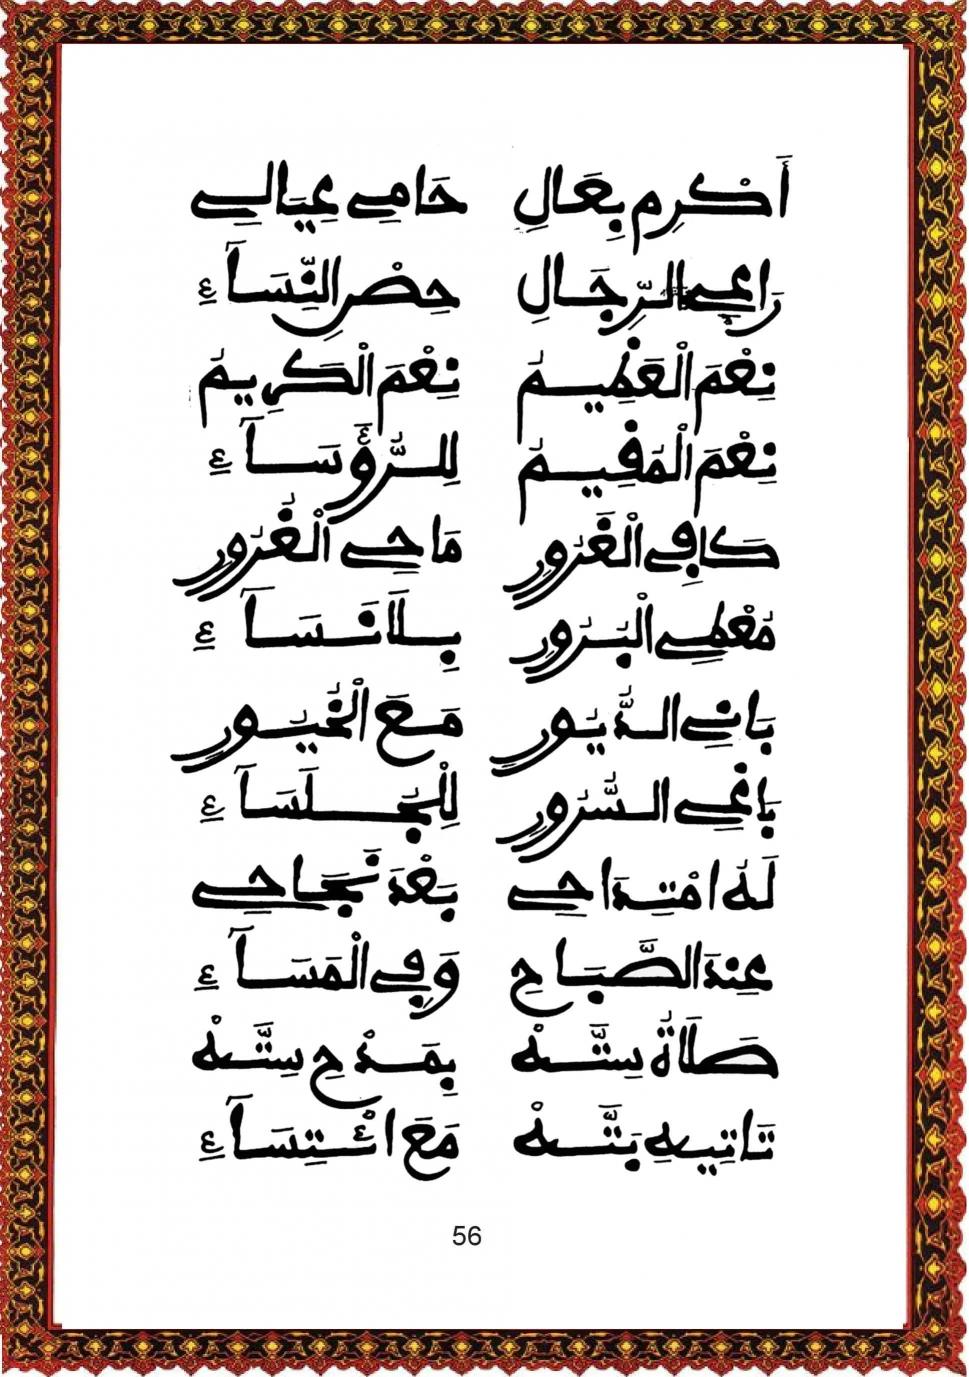 أَكْرِم بِعَالِ حَامِے عِيَالِے
رَاعِے الرِّجَالِ حِصْنِ النِّسَآءِ
نِعْمَ الْعَظِيمُ نِعْمَ الْكَرِيمُ
نِعْمَ الْمُقِيمُ لِلرُّؤَسَآءِ
كَافِے الْغَرُورِ مَاحِے الْغُرُورِ
مُعْطِے الْبُرُورِ بِلَا نَسَآءِ
بَانِے الدُّيُورِ مَعَ الْخُيُورِ
بَاغِے السُّرُورِ لِلْجُلَسَآءِ
لَهُ امْتِدَاحِے بَعْدَ نَجَاحِے
عِنْدَ الصَّبَاحِ وَفِے الْمَسَآءِ
صَلَاةُ سِتَّهْ بِمَدْحِ سِتَّهْ
تَاتِيهِ بَتَّهْ مَعَ ائْتِسَآءِ
56